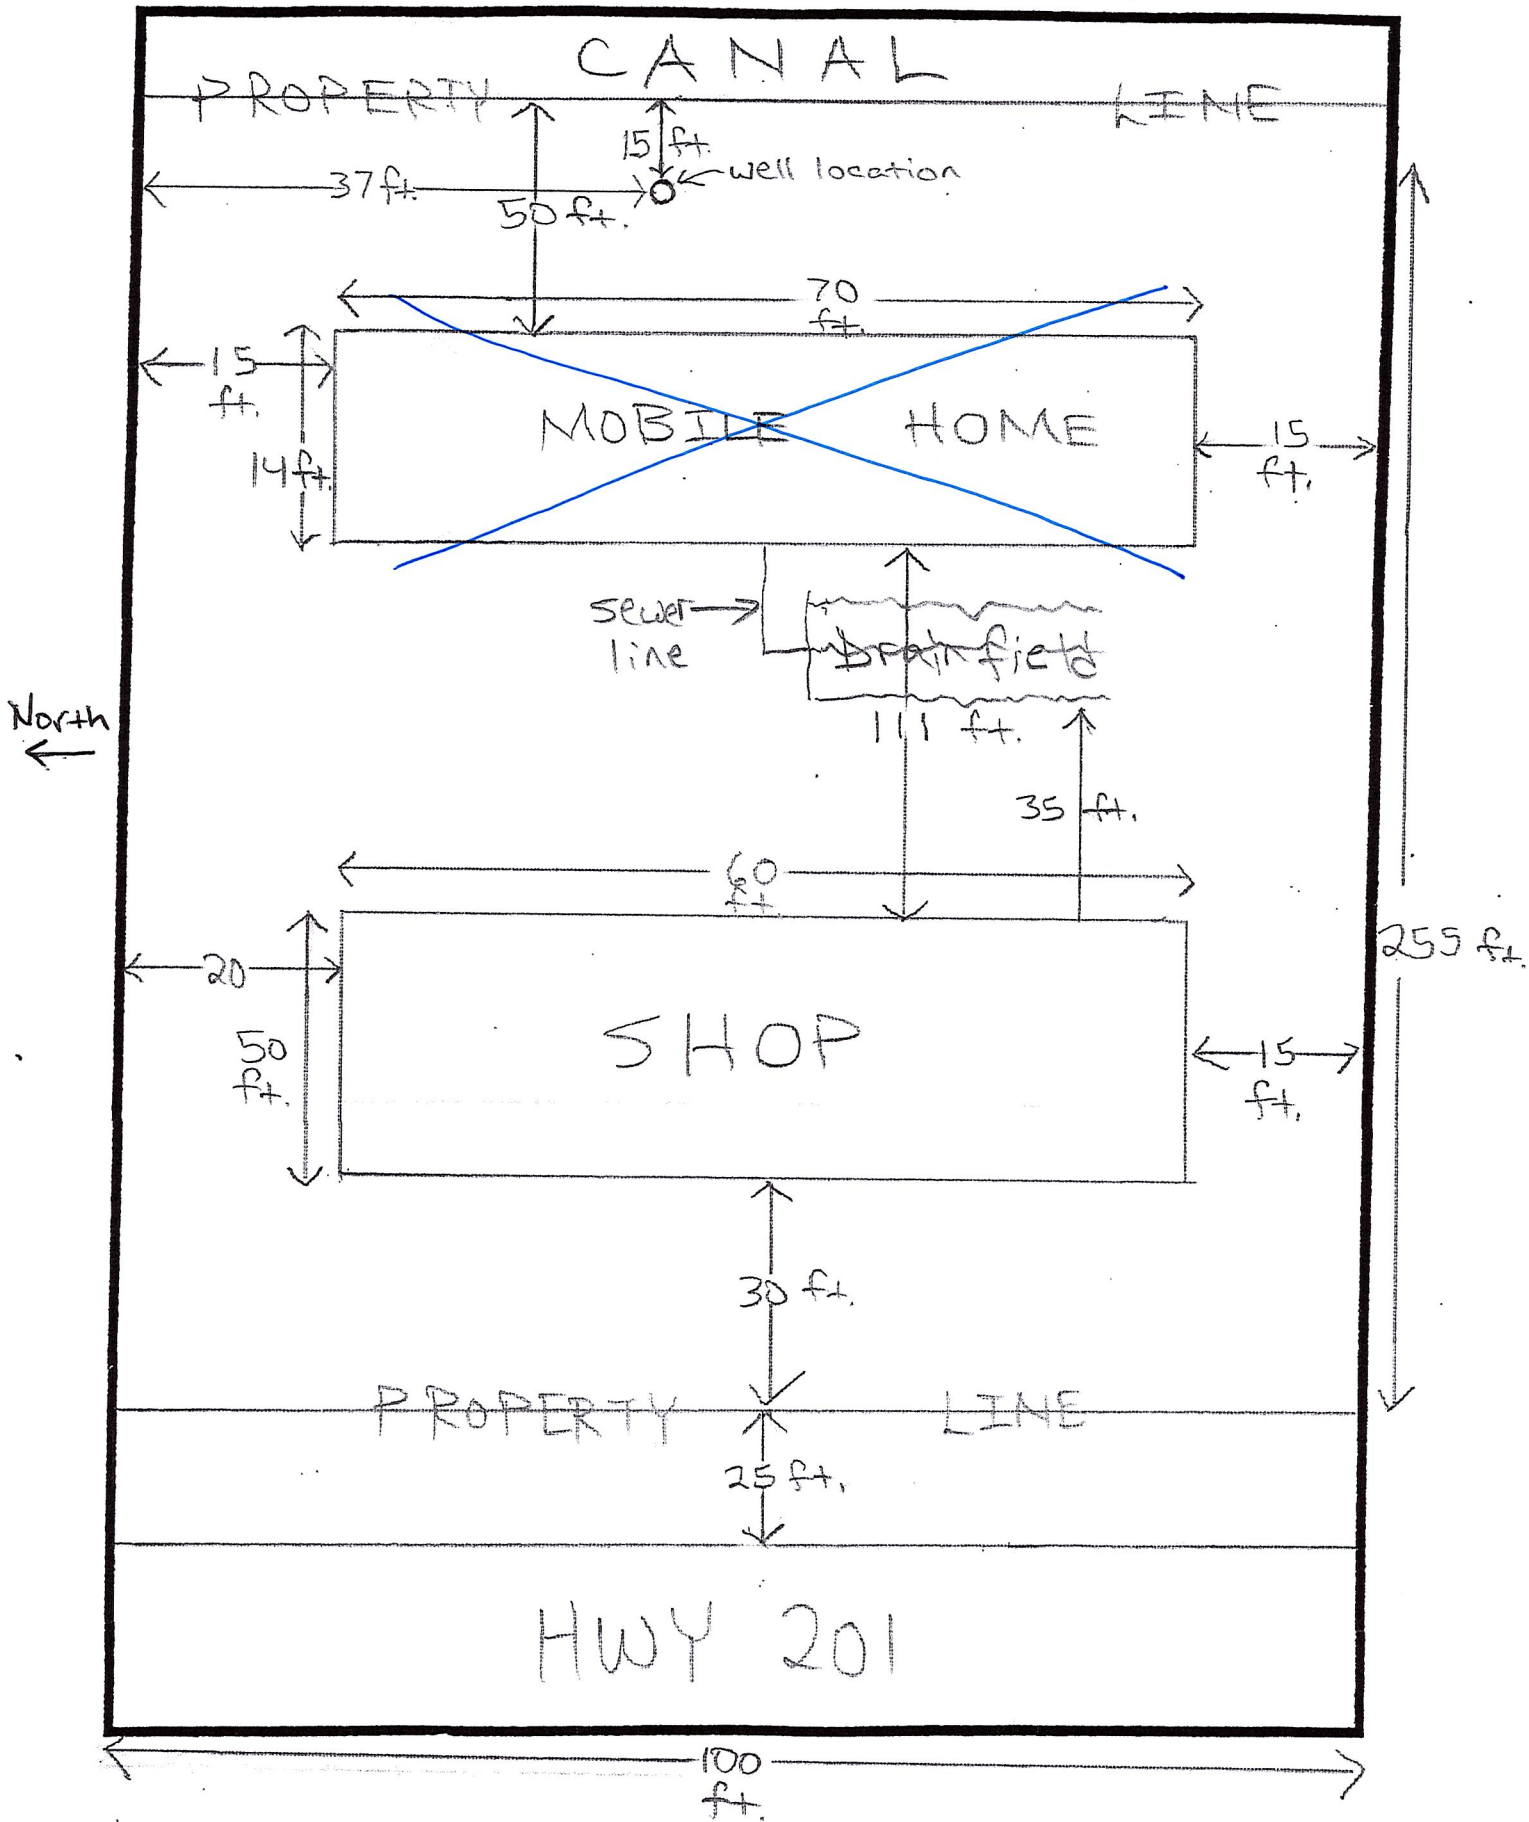 CANAL
PROPERTY LINE
15 ft.
well location
37 ft.
50 ft.
70
ft.
15
ft.
MOBILE HOME
14 ft.
15
ft.
sewer
line
Drain field
111 ft.
North
35 ft.
60
ft.
255 ft.
20
SHOP
50
ft.
15
ft.
30 ft.
PROPERTY LINE
25 ft.
HWY 201
100
ft.